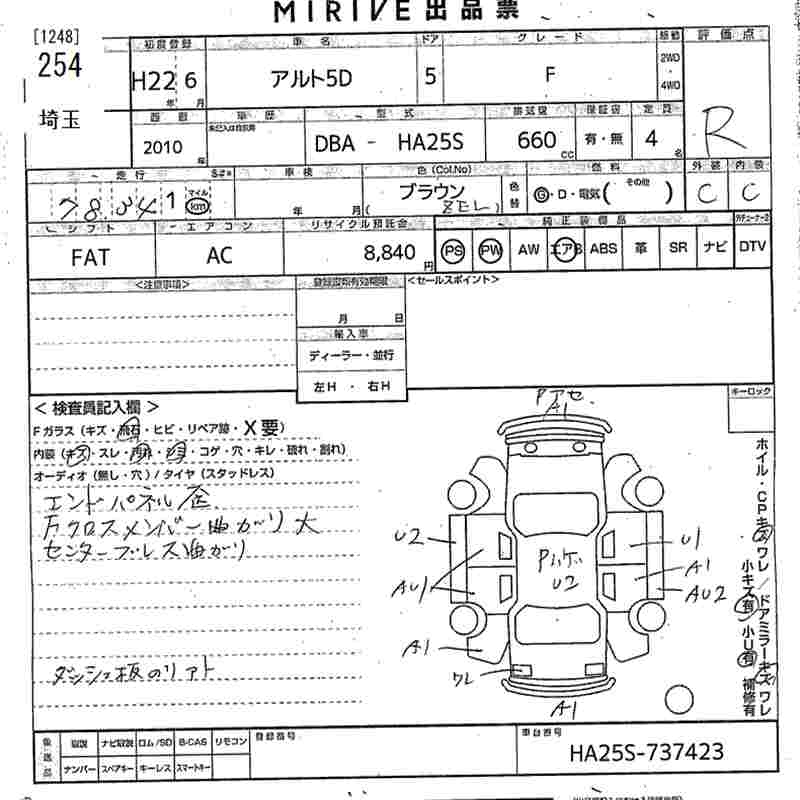 MIRIVE 出品票
[1248]
254
埼玉
初度登録 車名 ドア グレード 駆動 評価点
H22 6 アルト5D 5 F 2WD・4WD R
年 月
西暦 車歴 型式 排気量 保証書 定員
2010 年 未記入は自家用 DBA - HA25S 660 CC 有・無 4 名
走行 車検 色(Col.No) 燃料 外装 内装
78,041 マイル km 年 月 ブラウン (ZEL) 色替 G・D・電気 (その他) C C
シフト エアコン リサイクル預託金 純正装備品
FAT AC 8,840円 PS PW AW エアB ABS 革 SR ナビ DTV
<注意事項> 登録店有効期限 <セールスポイント>
月 日
輸入車
ディーラー・並行
左H ・ 右H
< 検査員記入欄 > キーロック
Fガラス(キズ・飛石・ヒビ・リペア跡・X要)
内装(キズ・スレ・汚れ・シミ・コゲ・穴・キレ・破れ・割れ)
オーディオ(無し・穴)/タイヤ(スタッドレス)
エンドパネル歪
Fクロスメンバー曲がり大
センターブレス曲がり
ダッシュ板のリアト
Pアセ
A1
U2
U1
Pルーフ
U2
A1
AU1
AU2
A1
ワレ
A1
ホイル・CPキズワレ/ドアミラーキズワレ
小キズ有 小U有 補修有
後送品 取説 ナビ取説 ロム/SD B-CAS リモコン 登録番号 車台番号
ナンバー スペアキー キーレス スマートキー HA25S-737423